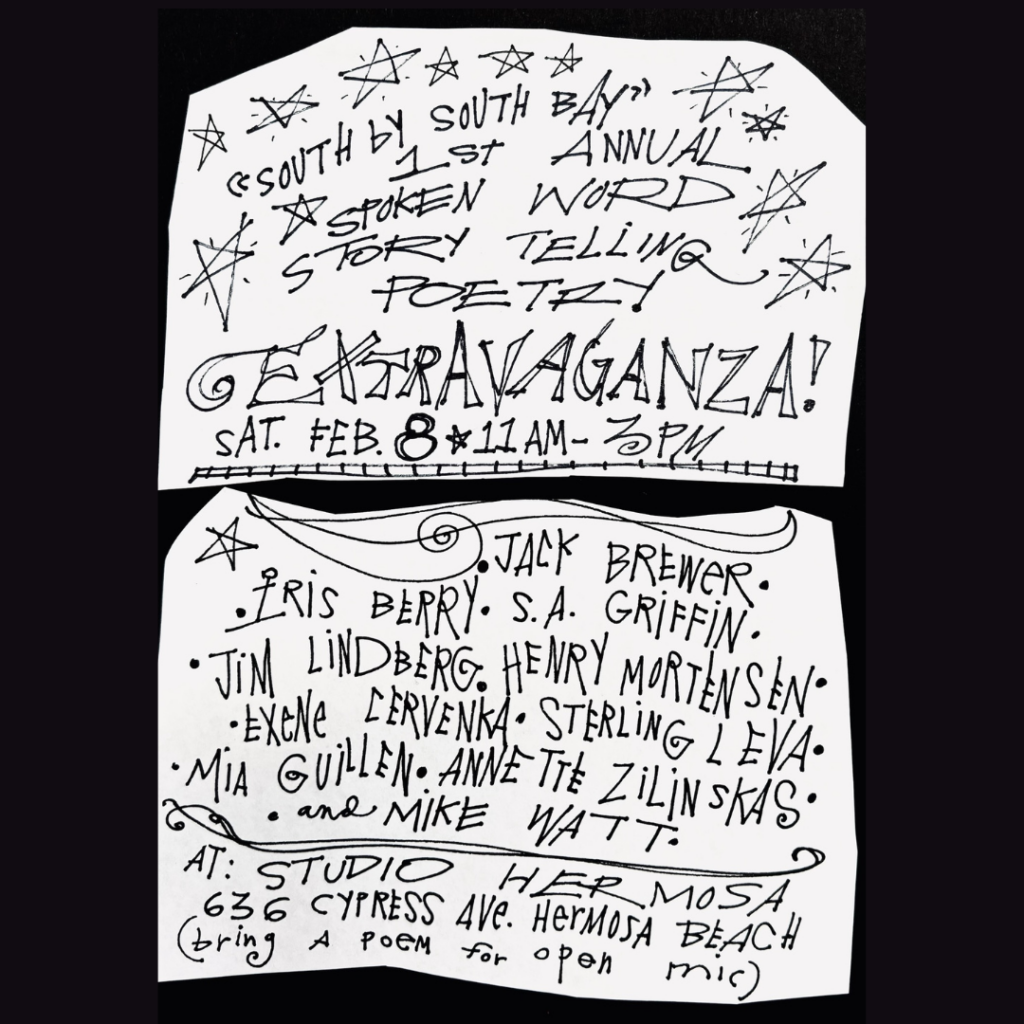 "SOUTH by SOUTH BAY"
1st ANNUAL
SPOKEN WORD
STORY TELLING
POETRY
EXTRAVAGANZA!
SAT. FEB. 8 ☆ 11 AM - 3 PM
• JACK BREWER •
• IRIS BERRY • S.A. GRIFFIN •
• JIM LINDBERG • HENRY MORTENSEN •
• EXENE CERVENKA • STERLING LEVA •
• MIA GUILLEN • ANNETTE ZILINSKAS •
• and MIKE WATT •
AT: STUDIO HERMOSA
636 CYPRESS AVE. HERMOSA BEACH
(bring A POEM for open mic)